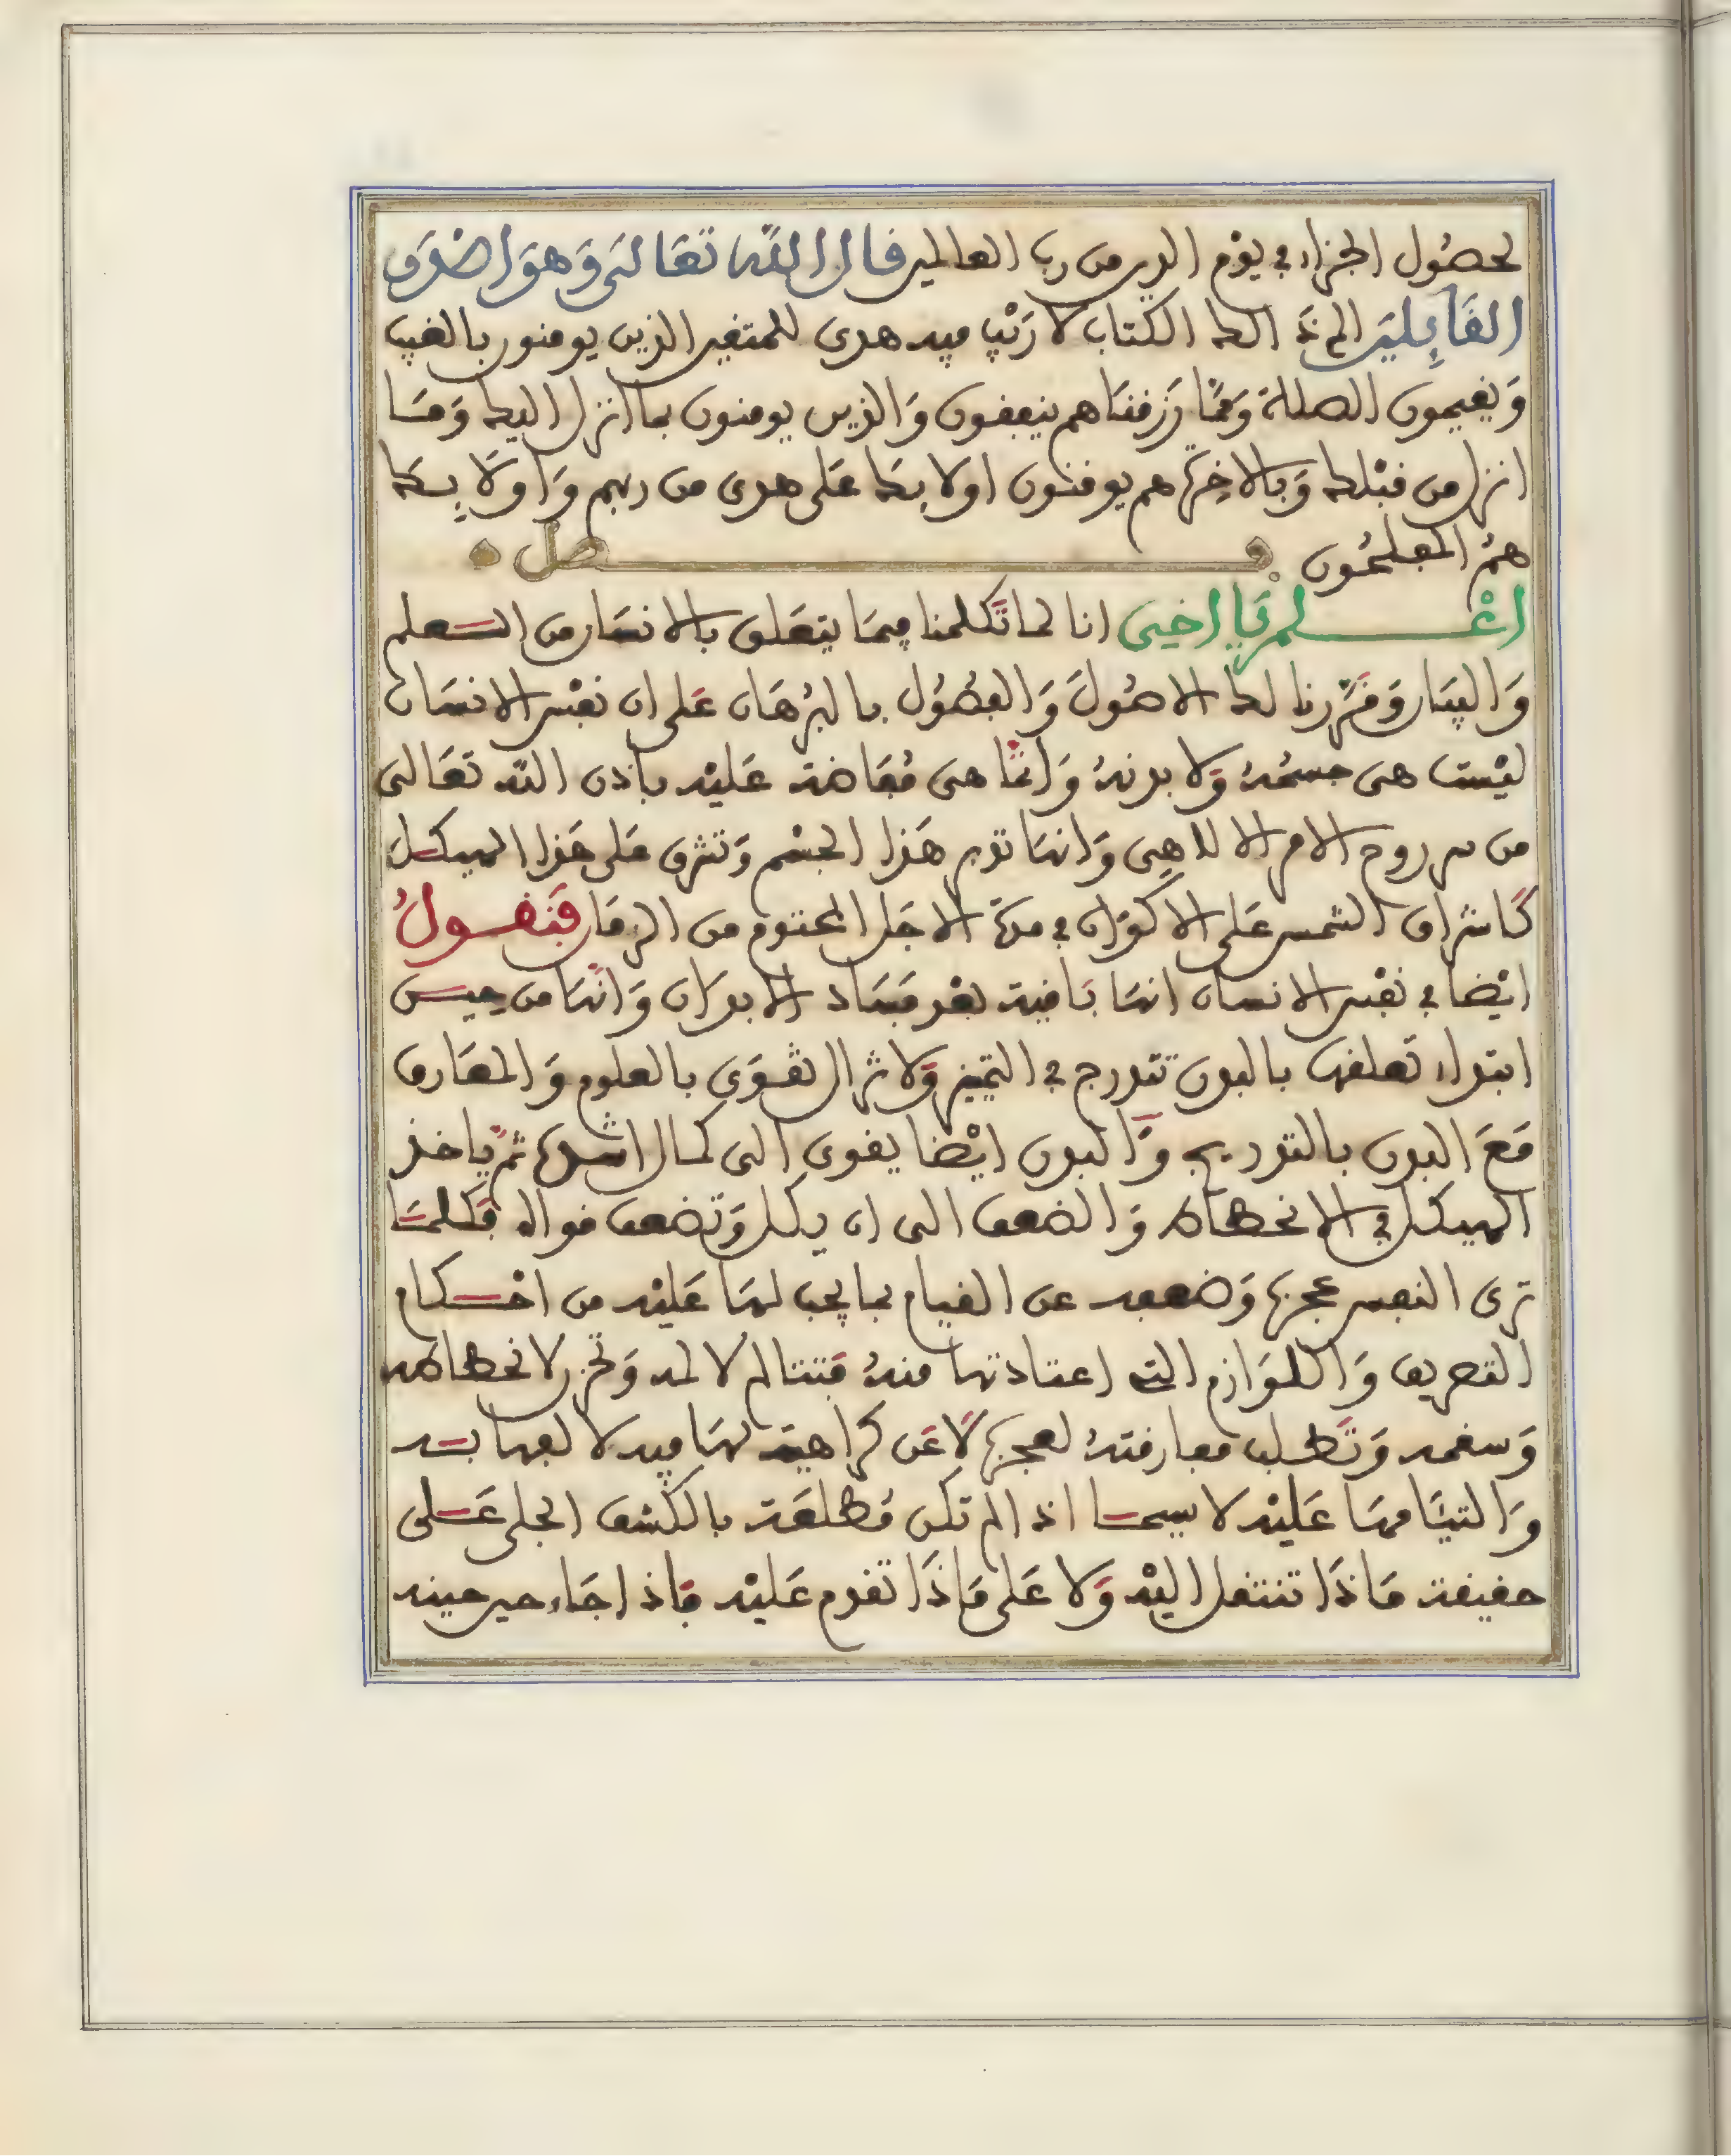 لحصُول الجزاء في يوْم الدين من رب العالمين قال اللّه تعَالىَ وَهوَ اصْدَق
القَائِليَن الم ذَالك الكتاب لا رَيْب فيه هدى للمتقين الذين يومنون بالغيب
وَيقيمون الصلاة وَممَّا رَزقنَاهم ينفقون وَالذين يومنون بما انزل اليك وَمَا
انزل من قبْلك وَبالاخِرَة هم يوقنون اولايك عَلى هدى من ربهم وَاوْلايِك
همُ المفلحُون فصل
اعْلم يَا اخيى انا لما تَكلمنا فيمَا يتعَلق بالانسَان من العلم
وَالبيَان وَقرَّرنا لك الاصُولَ وَالفصُول بالبرُهَان عَلى ان نفْس الانسَان
ليْست هى جسمُهُ وَلا بدنهُ وَانمَّا هى مُفَاضة عَليْه باذن اللّه تعَالى
من سر روح الامر الالاهِى وَانهَا تدبر هَذا الجسْم وَتشرق عَلى هَذا الهيكل
كَاشراق الشمس عَلى الاكوَان في مدة الاجَل المحتوم من الزمَان فنَقول
ايْضا في نفْس الانسان انهَا بَاقية بعْد فسَاد الابدَان وَانهَّا من حين
ابتداء تعَلقها بالبدن تتدرج في التمييز وَلا تزال تقْوَى بالعلوم وَالمعَارف
مَعَ البدن بالتدريج وَالبدن ايْضا يقوى الى كمال اشده ثمَّ ياخذ
الهيكل في الانحطاط وَالضعف الى ان يكل وَتضعف قواه فكلمَا
ترى النفس عجزها وَضعفه عن القيام بما يجب لهَا عَليْه من احْكام
التصريف وَاللوَازم التى اعتادتها منهُ فتتالم لالمه وَتحزن لانحطاطه
وَسقمه وَتطلب مفارقتهُ لعجزها لَا عَن كرَاهية لهَا فيه لالفها به
وَالتيَامهَا عَليْه لا سيما اذا لم تكن مُطلعَة بالكشف الجلى عَلى
حقيقة مَاذَا تنتقل اليْه وَلا عَلى مَاذَا تقدم عَليْه فاذا جَاء حين حينه